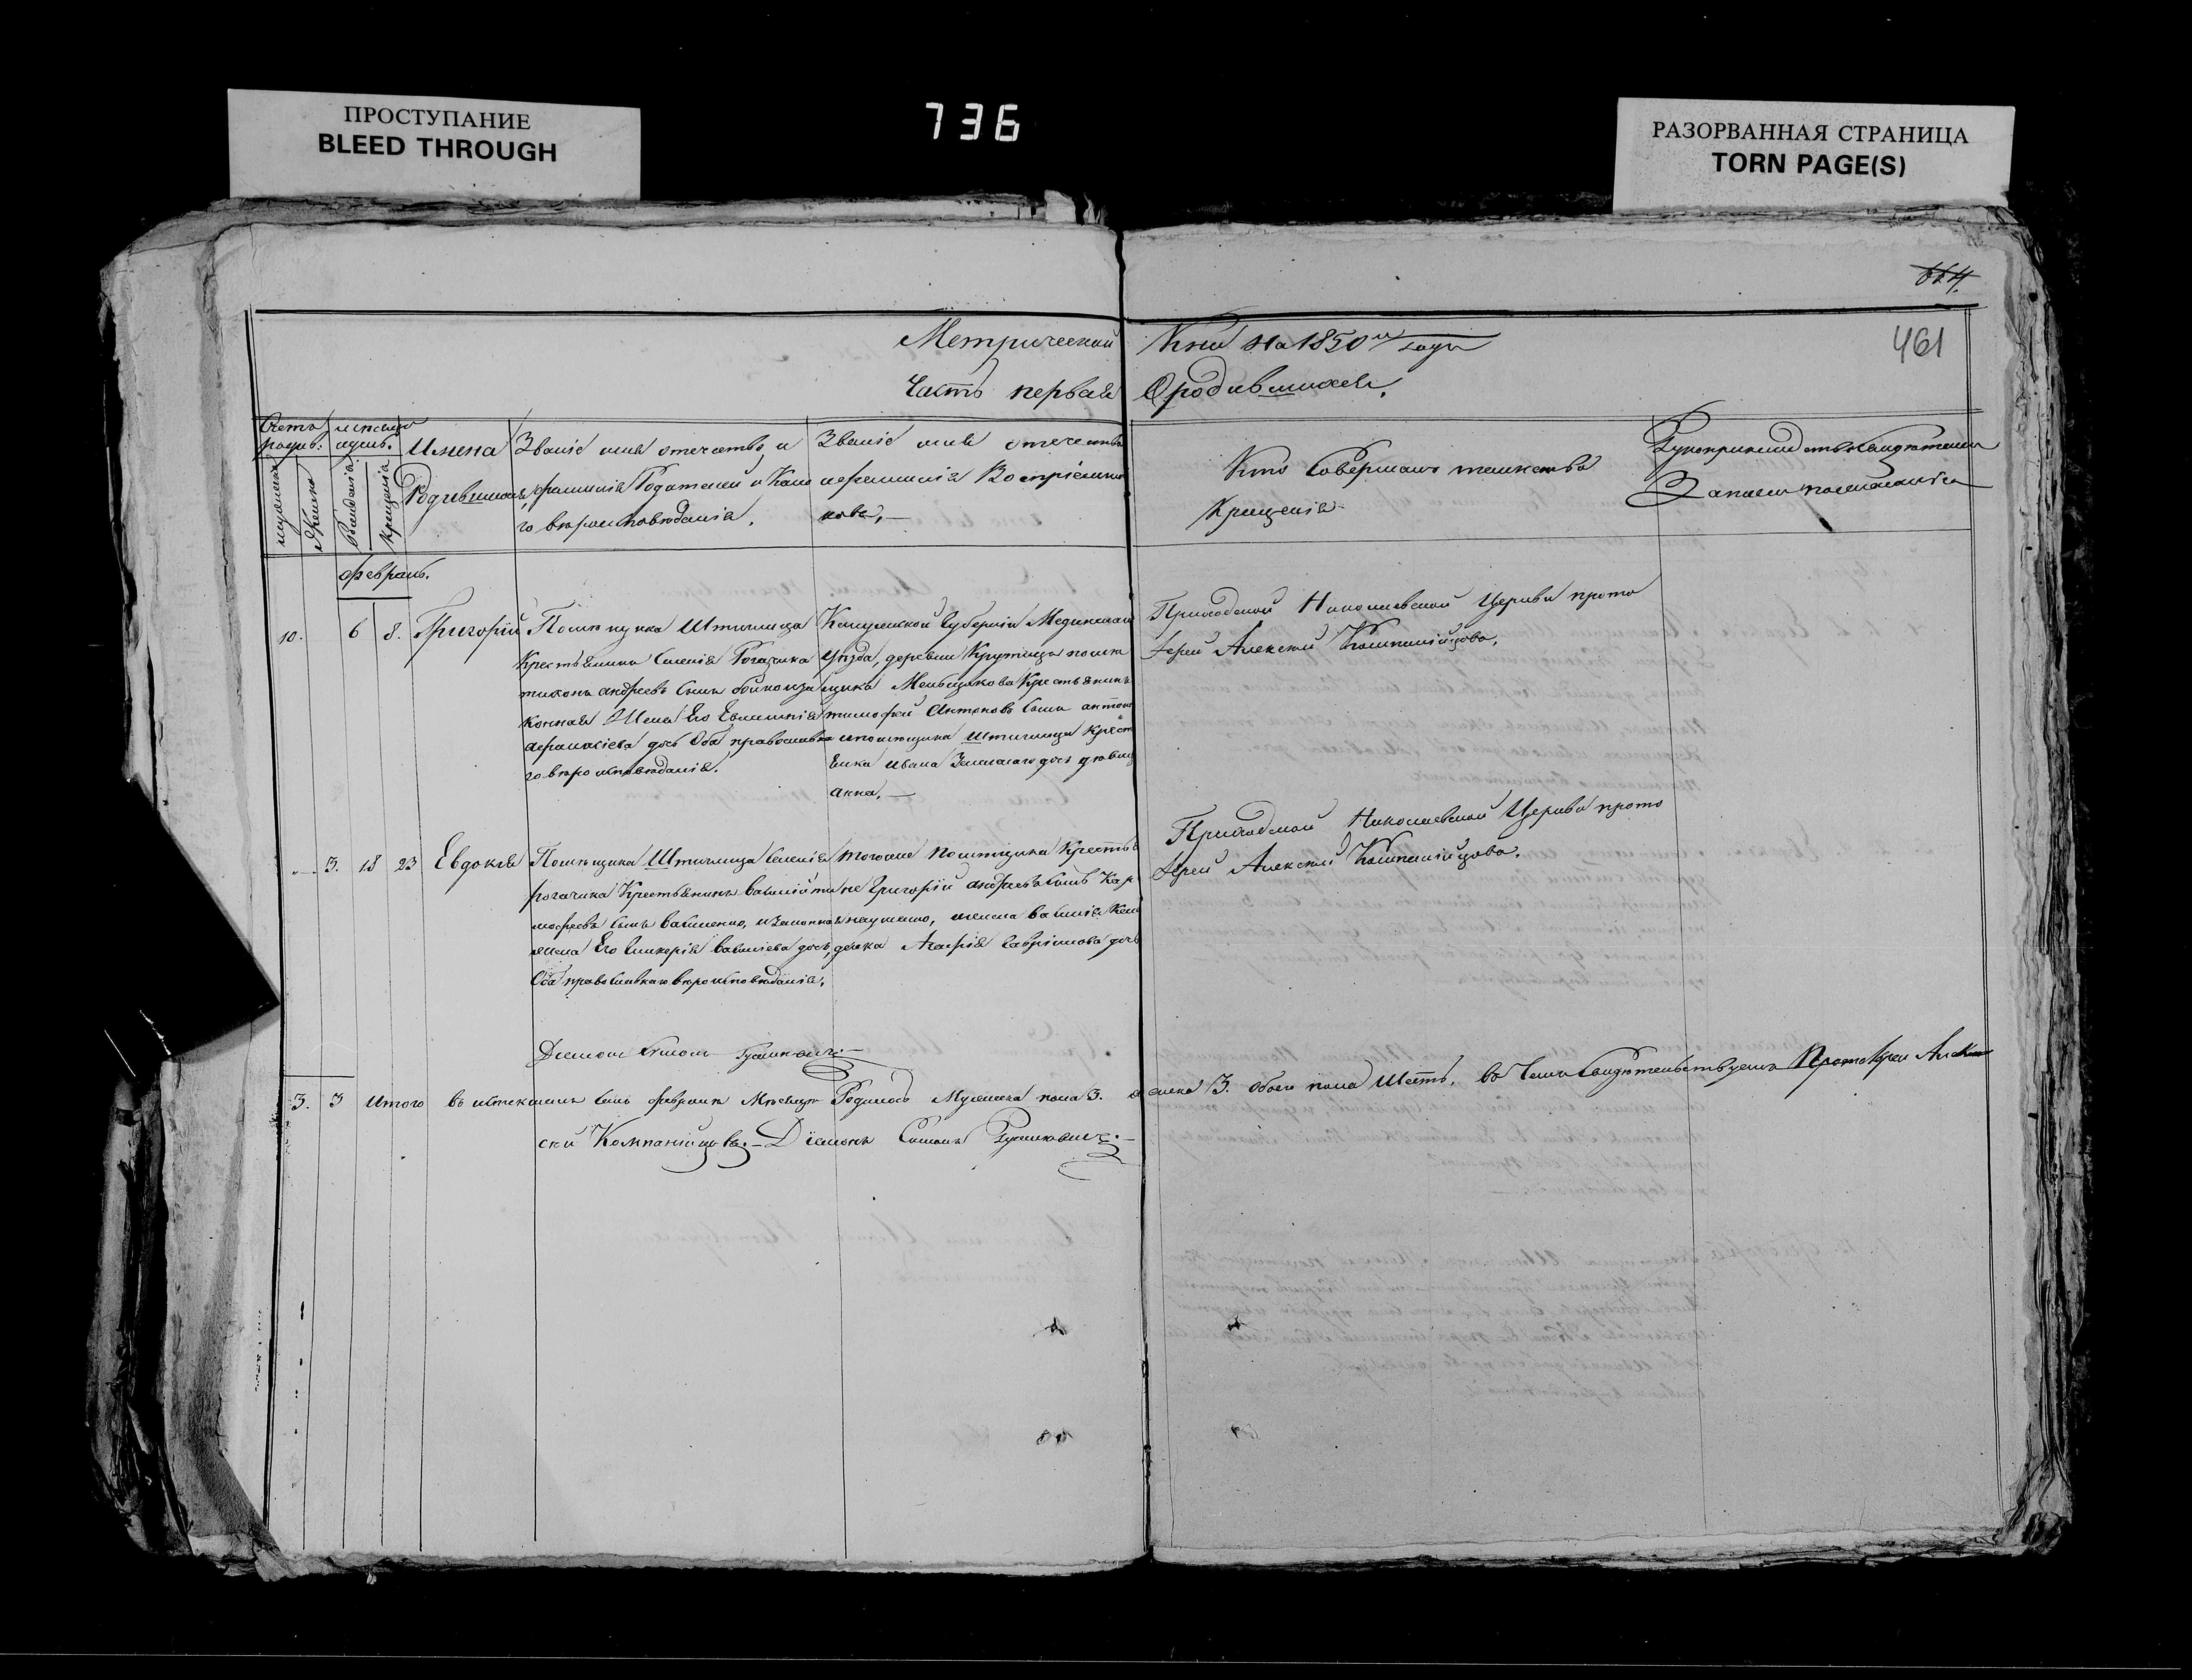 ПРОСТУПАНИЕ
BLEED THROUGH
736
РАЗОРВАННАЯ СТРАНИЦА
TORN PAGE(S)
461
Метрической Книги На 1850й года
Часть первая О родившихся.
Счетъ родив.
мужеска
Женска
месяцъ и день.
Рожденія
Крещенія
Имена
Родившихся
Званіе имя отечество, и
фамилія Родителей и Како
го вѣроисповѣданія.
Званіе имя отечество
и фамилія Воспріемни
ковъ,
Кто Совершалъ таинство
Крещенія
Рукоприкладство свидѣтелей
Записи по желанію
Февраль.
10. 6 8. Григорій
Помѣщика
Крестьянинъ Селенія Рогачика
тихонъ андреевъ сынъ и за
конная Жена Его Евгенія
афанасіева дочь Оба православна
го вѣроисповѣданія.
Калужской Губерніи Медынскаго
Уѣзда, деревни помѣ
щика Меньщикова Крестьянинъ
тимофей Антоновъ сынъ
и помѣщика
ивана дочь дѣвица
анна,
Приходской Николаевской Церкви прото
Іерей Алексѣй Компанійцовъ,
3. 18 23 Евдокія
Помѣщика Селенія
рогачика Крестьянинъ василій ти
мофеевъ сынъ василенко, и законная
жена Его Гликерія васильева дочь,
Оба православнаго вѣроисповѣданія.
тогоже помѣщика Крестья
не Григорій андреевъ сынъ Кар
наушко, жена василія
Агафія Гавріилова дочь
Приходской Николаевской Церкви прото
Іерей Алексѣй Компанійцовъ.
Діаконъ Симонъ
3. 3 Итого въ истекшемъ семъ февралѣ Мѣсяцѣ Родилось Мужеска пола 3. женска 3. обоего пола Шесть, въ чемъ Свидѣтельствуемъ Протоіерей Алек
сѣй Компанійцовъ. Діаконъ Симонъ